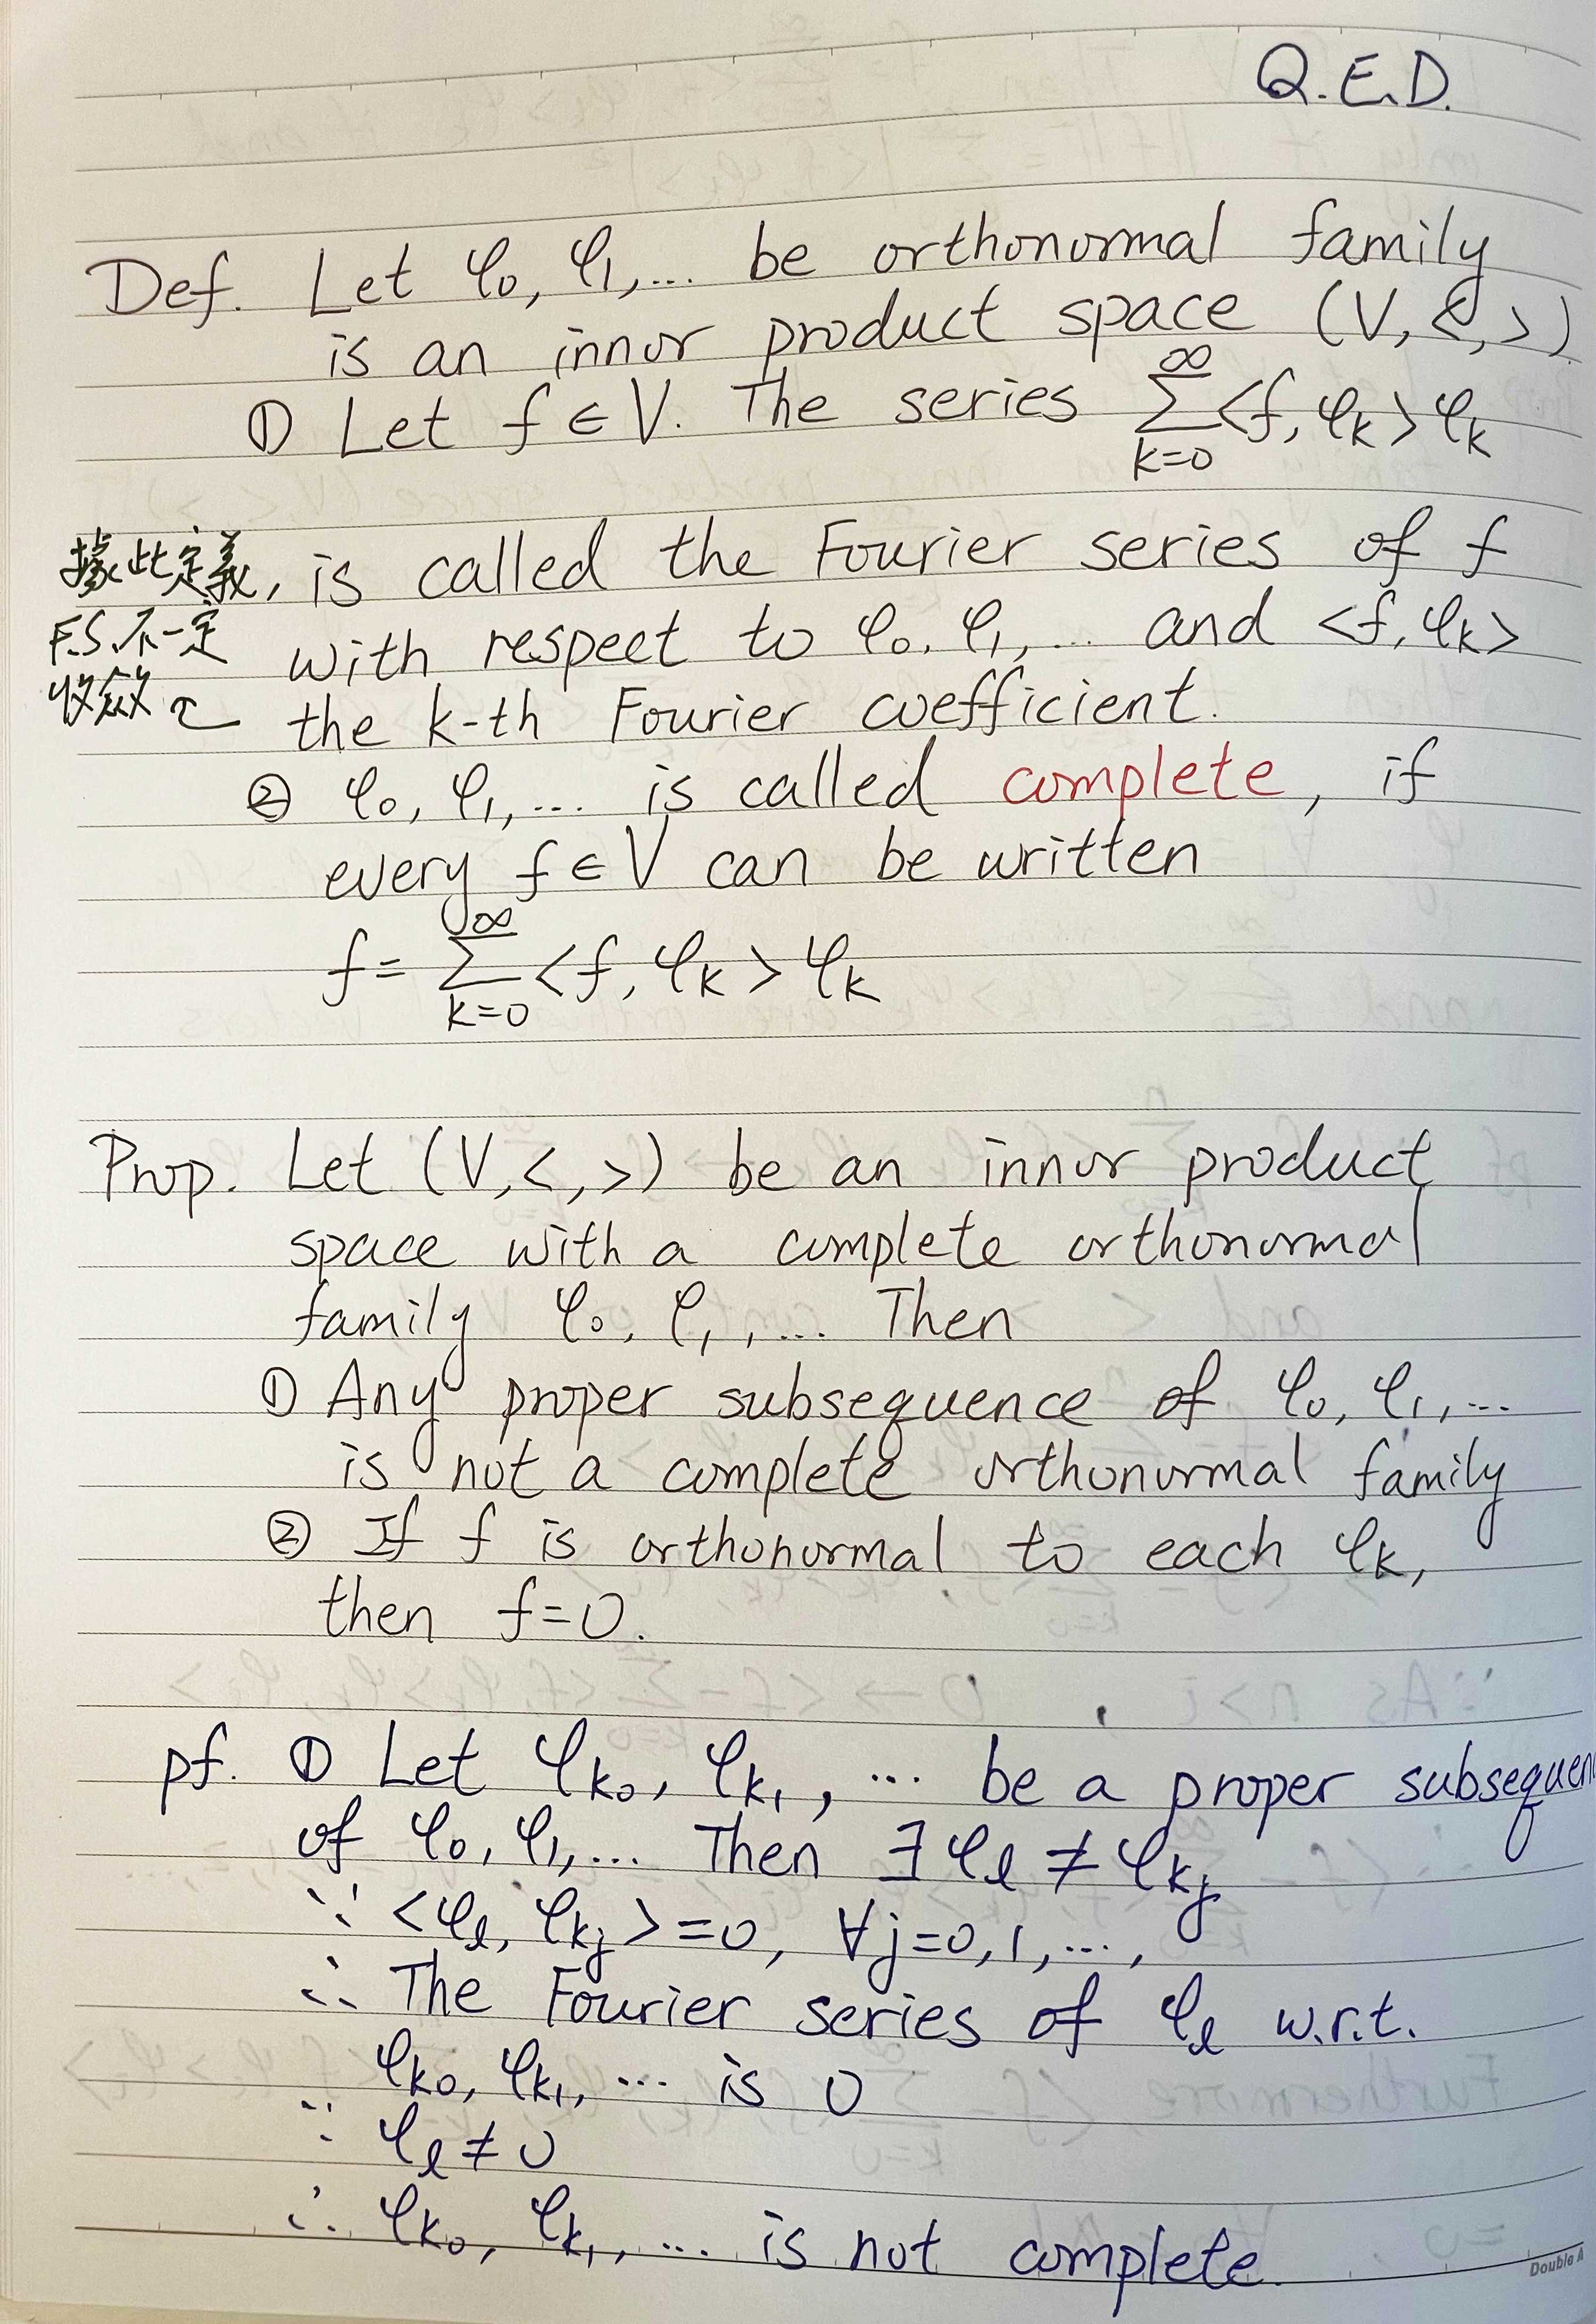 Q.E.D.
Def. Let φ₀, φ₁, ... be orthonormal family
is an inner product space (V, <, >)
① Let f ∈ V. The series ∑_{k=0}^{∞} <f, φₖ> φₖ
據此定義, is called the Fourier series of f
F.S.不一定 with respect to φ₀, φ₁, ... and <f, φₖ>
收斂 the k-th Fourier coefficient.
② φ₀, φ₁, ... is called complete, if
every f ∈ V can be written
f = ∑_{k=0}^{∞} <f, φₖ> φₖ
Prop. Let (V, <, >) be an inner product
space with a complete orthonormal
family φ₀, φ₁, ... Then
① Any proper subsequence of φ₀, φ₁, ...
is not a complete orthonormal family
② If f is orthonormal to each φₖ,
then f=0.
pf. ① Let φ_{k₀}, φ_{k₁}, ... be a proper subsequen
of φ₀, φ₁, ... Then ∃ φ_ℓ ≠ φ_{k_j}
∵ <φ_ℓ, φ_{k_j}> = 0, ∀ j=0, 1, ...,
∴ The Fourier series of φ_ℓ w.r.t.
φ_{k₀}, φ_{k₁}, ... is 0
∵ φ_ℓ ≠ 0
∴ φ_{k₀}, φ_{k₁}, ... is not complete.
Double A